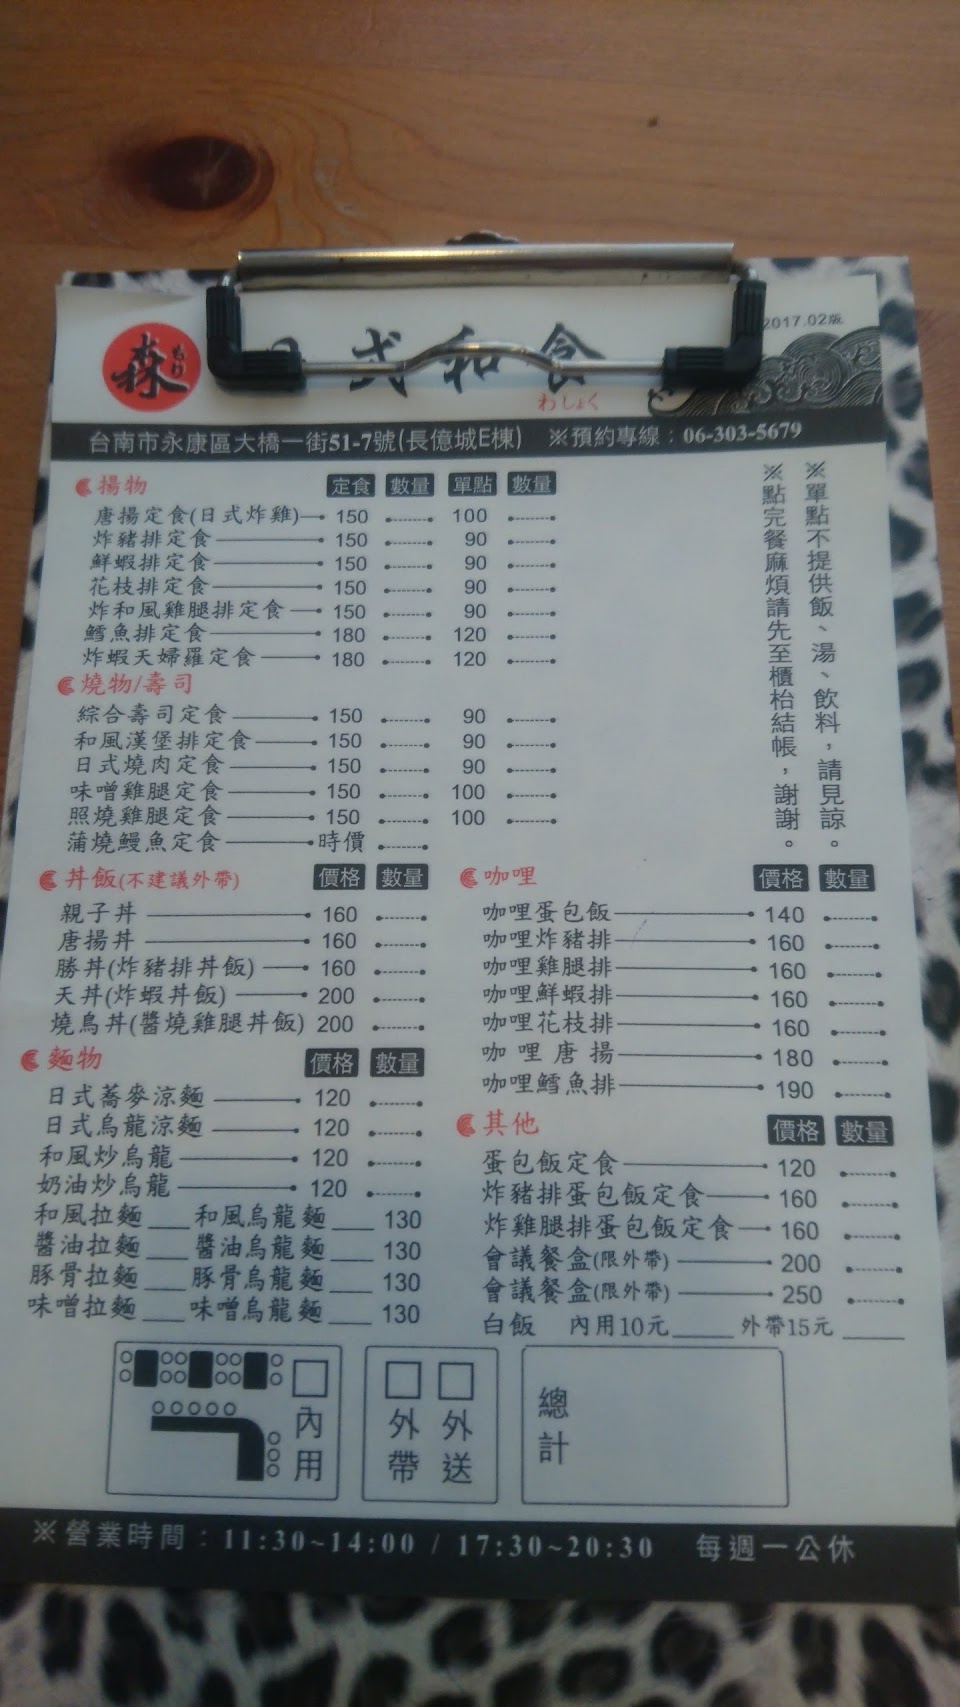 森 もり 日式和食 2017.02版
わしょく
台南市永康區大橋一街51-7號(長億城E棟) ※預約專線:06-303-5679
揚物 定食 數量 單點 數量
唐揚定食(日式炸雞) 150 100
炸豬排定食 150 90
鮮蝦排定食 150 90
花枝排定食 150 90
炸和風雞腿排定食 150 90
鱈魚排定食 180 120
炸蝦天婦羅定食 180 120
燒物/壽司
綜合壽司定食 150 90
和風漢堡排定食 150 90
日式燒肉定食 150 90
味噌雞腿定食 150 100
照燒雞腿定食 150 100
蒲燒鰻魚定食 時價
※單點不提供飯、湯、飲料,請見諒。
※點完餐麻煩請先至櫃枱結帳,謝謝。
丼飯(不建議外帶) 價格 數量
親子丼 160
唐揚丼 160
勝丼(炸豬排丼飯) 160
天丼(炸蝦丼飯) 200
燒鳥丼(醬燒雞腿丼飯) 200
麵物 價格 數量
日式蕎麥涼麵 120
日式烏龍涼麵 120
和風炒烏龍 120
奶油炒烏龍 120
和風拉麵 和風烏龍麵 130
醬油拉麵 醬油烏龍麵 130
豚骨拉麵 豚骨烏龍麵 130
味噌拉麵 味噌烏龍麵 130
咖哩 價格 數量
咖哩蛋包飯 140
咖哩炸豬排 160
咖哩雞腿排 160
咖哩鮮蝦排 160
咖哩花枝排 160
咖哩唐揚 180
咖哩鱈魚排 190
其他 價格 數量
蛋包飯定食 120
炸豬排蛋包飯定食 160
炸雞腿排蛋包飯定食 160
會議餐盒(限外帶) 200
會議餐盒(限外帶) 250
白飯 內用10元 外帶15元
內用
外帶
外送
總計
※營業時間:11:30~14:00 / 17:30~20:30 每週一公休